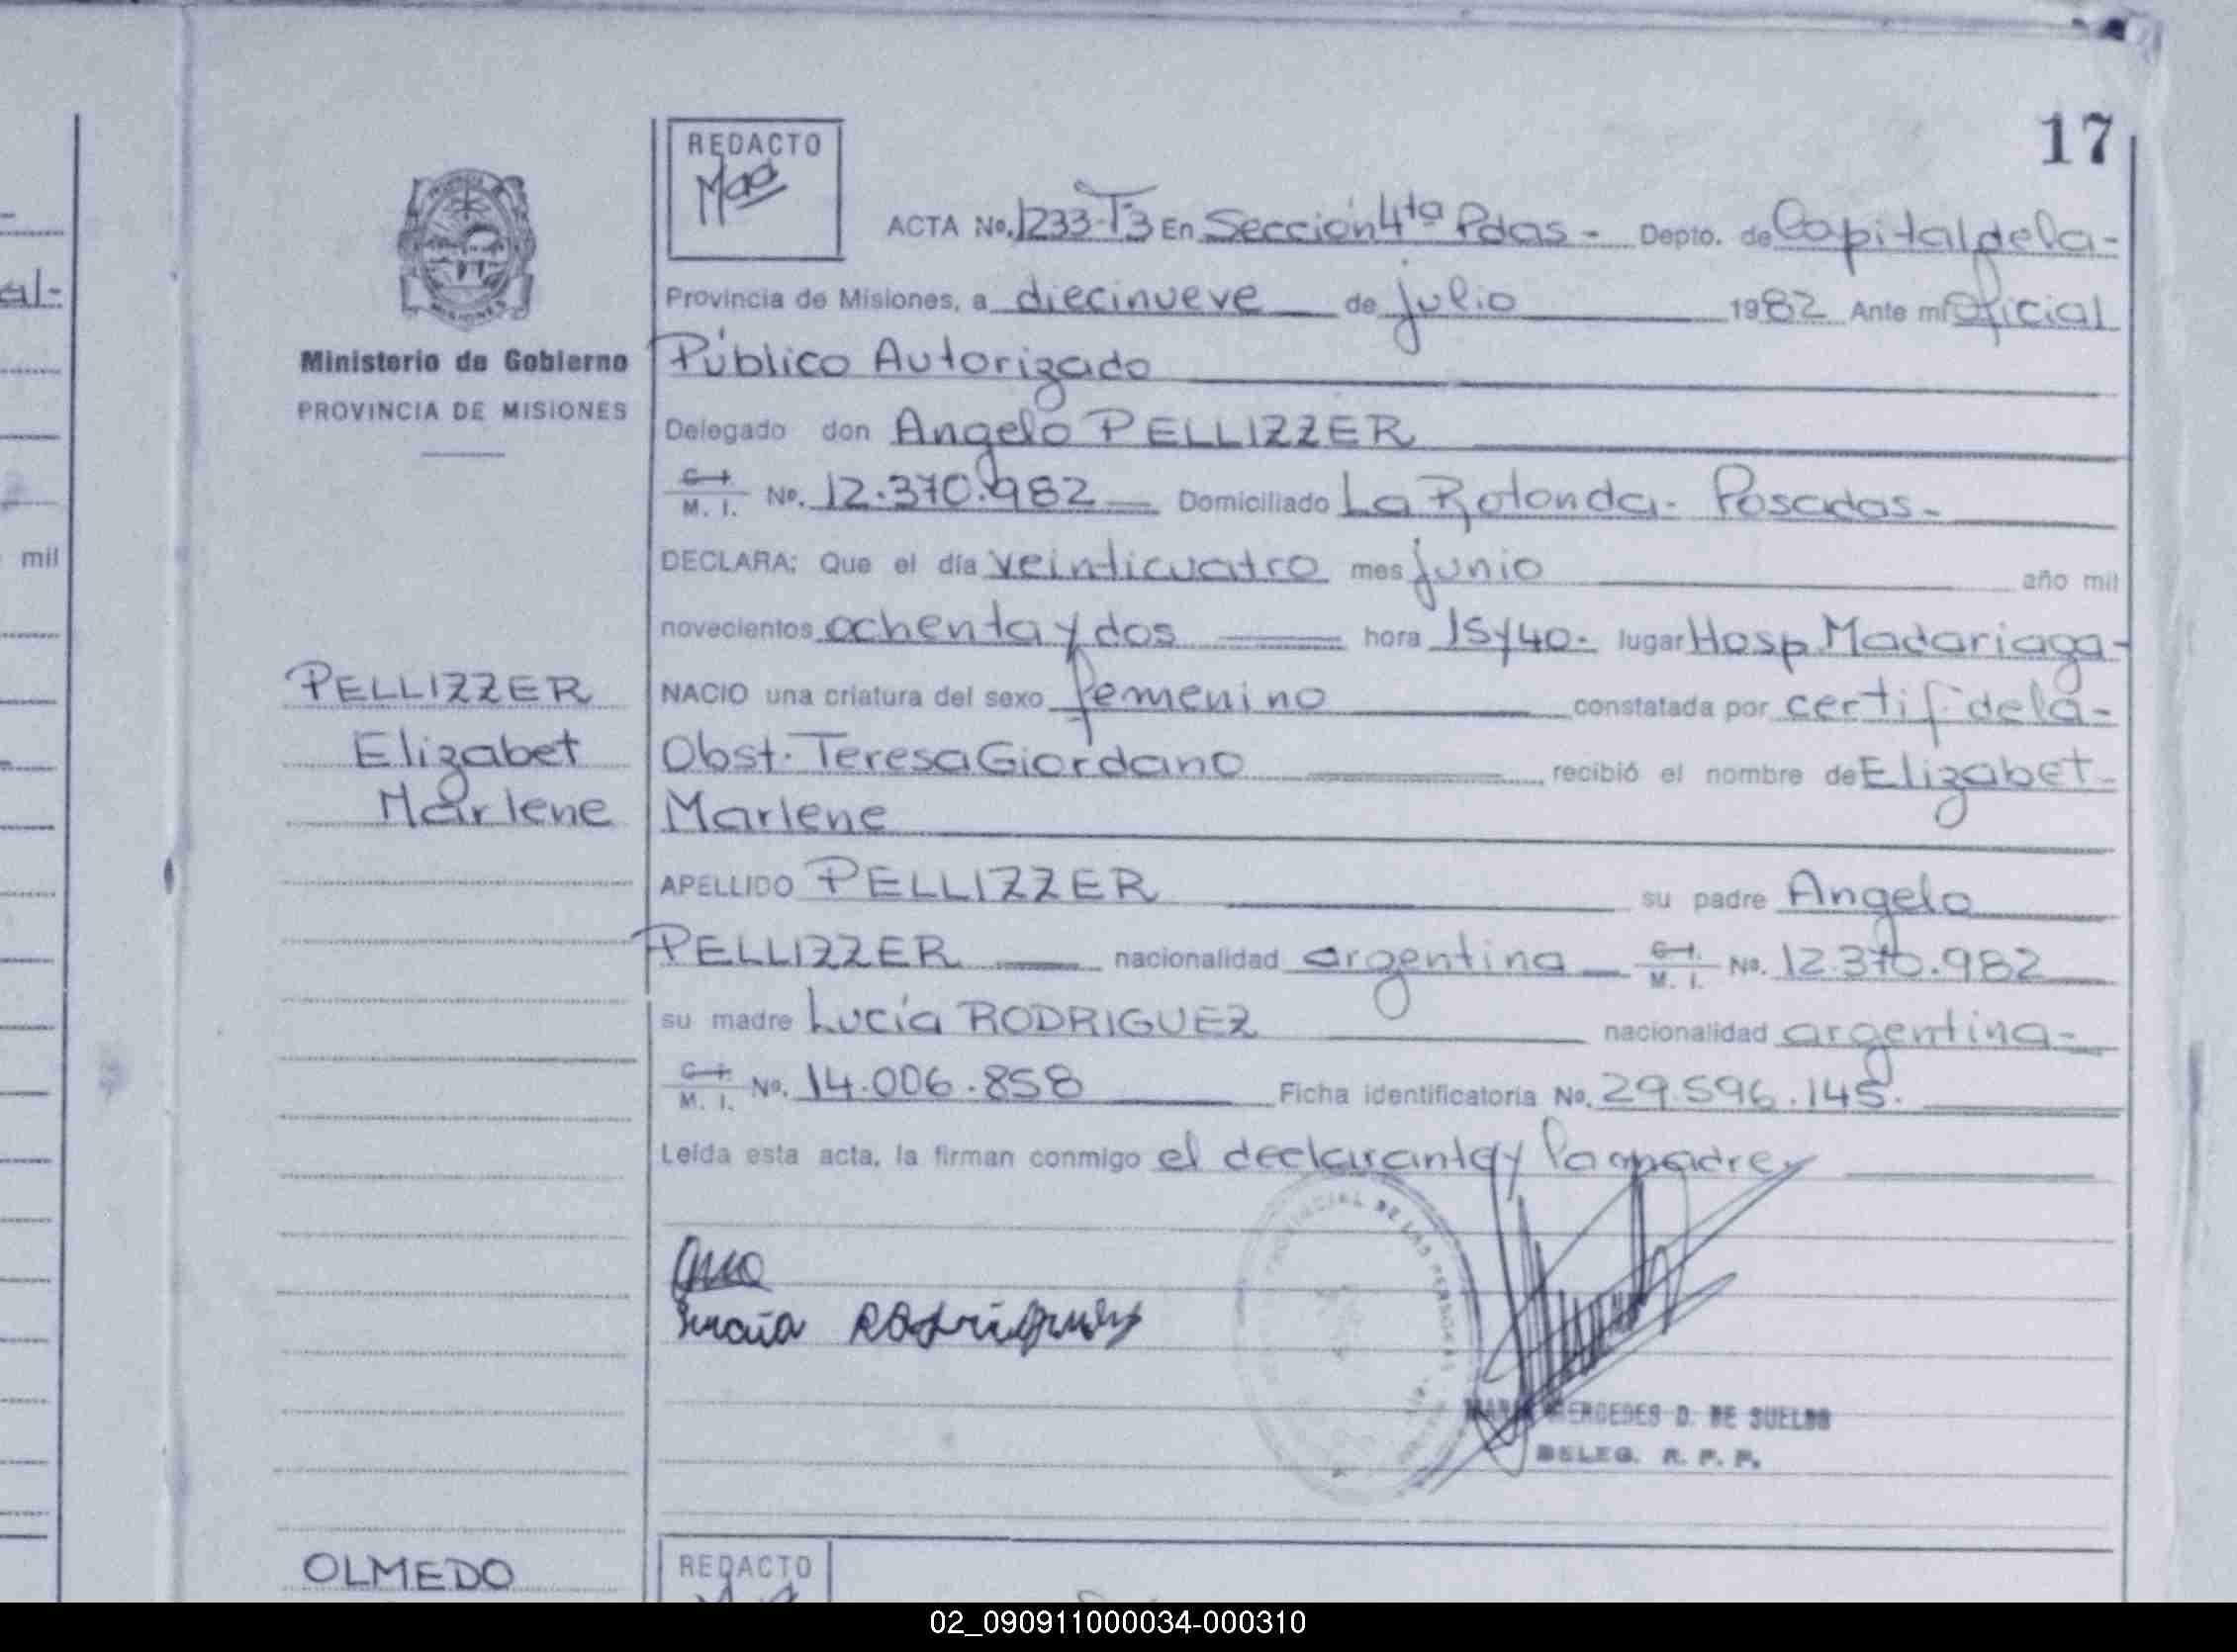 17
REDACTO
ACTA No. 1233-T3 En Sección 4ta Pdas - Depto. de Capital de la-
Provincia de Misiones, a diecinueve de julio 1982 Ante mí Oficial
Público Autorizado
Delegado don Angelo PELLIZZER
C. I.
M. I. No. 12.370.982 Domiciliado La Rotonda - Posadas -
DECLARA: Que el día veinticuatro mes junio año mil
novecientos ochenta y dos hora 15y40- lugar Hosp. Madariaga-
NACIO una criatura del sexo femenino constatada por certif de la-
Obst. Teresa Giordano recibió el nombre de Elizabet
Marlene
APELLIDO PELLIZZER su padre Angelo
PELLIZZER nacionalidad argentina C. I.
M. I. No. 12.370.982
su madre Lucía RODRIGUEZ nacionalidad argentina-
C. I.
M. I. No. 14.006.858 Ficha identificatoria No. 29.596.145.
Leída esta acta, la firman conmigo el declarante y la madre
Lucia Rodriguez
PROVINCIAL DE LAS PERSONAS
MARIA MERCEDES D. DE SUELDO
DELEG. R. P. P.
MISIONES
Ministerio de Gobierno
PROVINCIA DE MISIONES
PELLIZZER
Elizabet
Marlene
OLMEDO
REDACTO
al-
mil
02_090911000034-000310